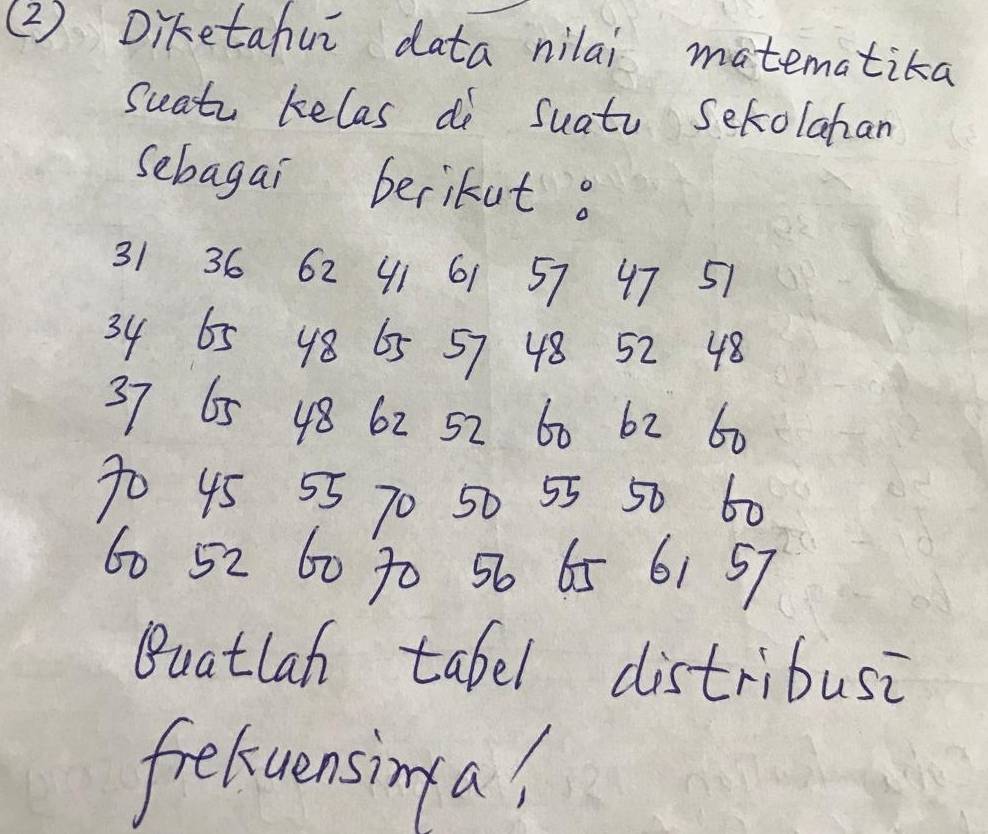 (2) Diketahui data nilai matematika
suatu kelas di suatu sekolahan
sebagai berikut :
31 36 62 41 61 57 47 51
34 65 48 65 57 48 52 48
37 65 48 62 52 60 62 60
70 45 55 70 50 55 50 60
60 52 60 70 56 65 61 57
Buatlah tabel distribusi
frekuensinya !